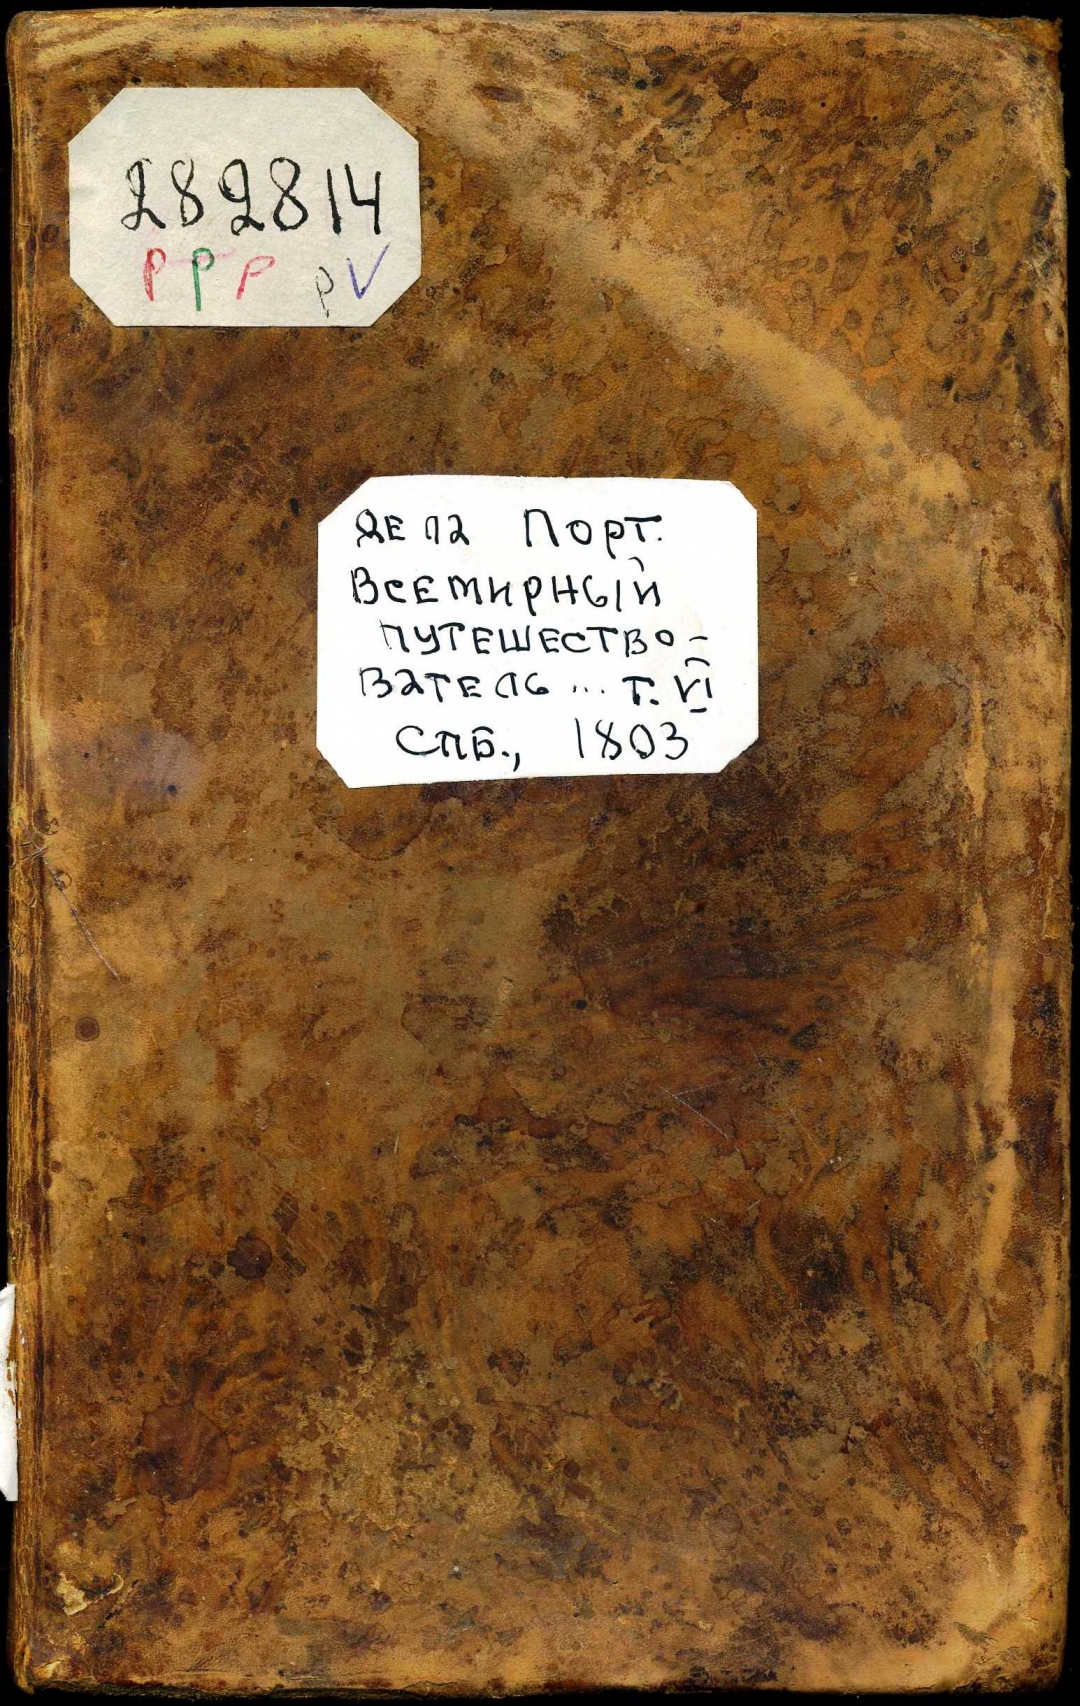 282814
р р р р V
Де ла Порт.
Всемирный
путешество-
ватель ... т. VI
СПБ., 1803